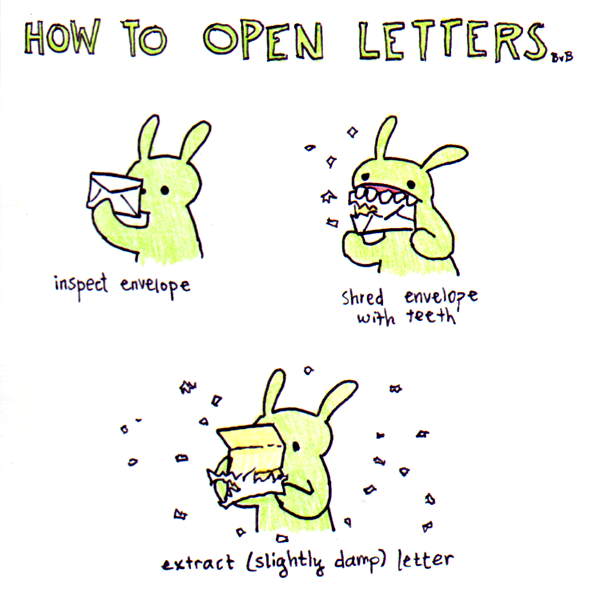 HOW TO OPEN LETTERS
BvB
inspect envelope
shred envelope
with teeth
extract (slightly damp) letter